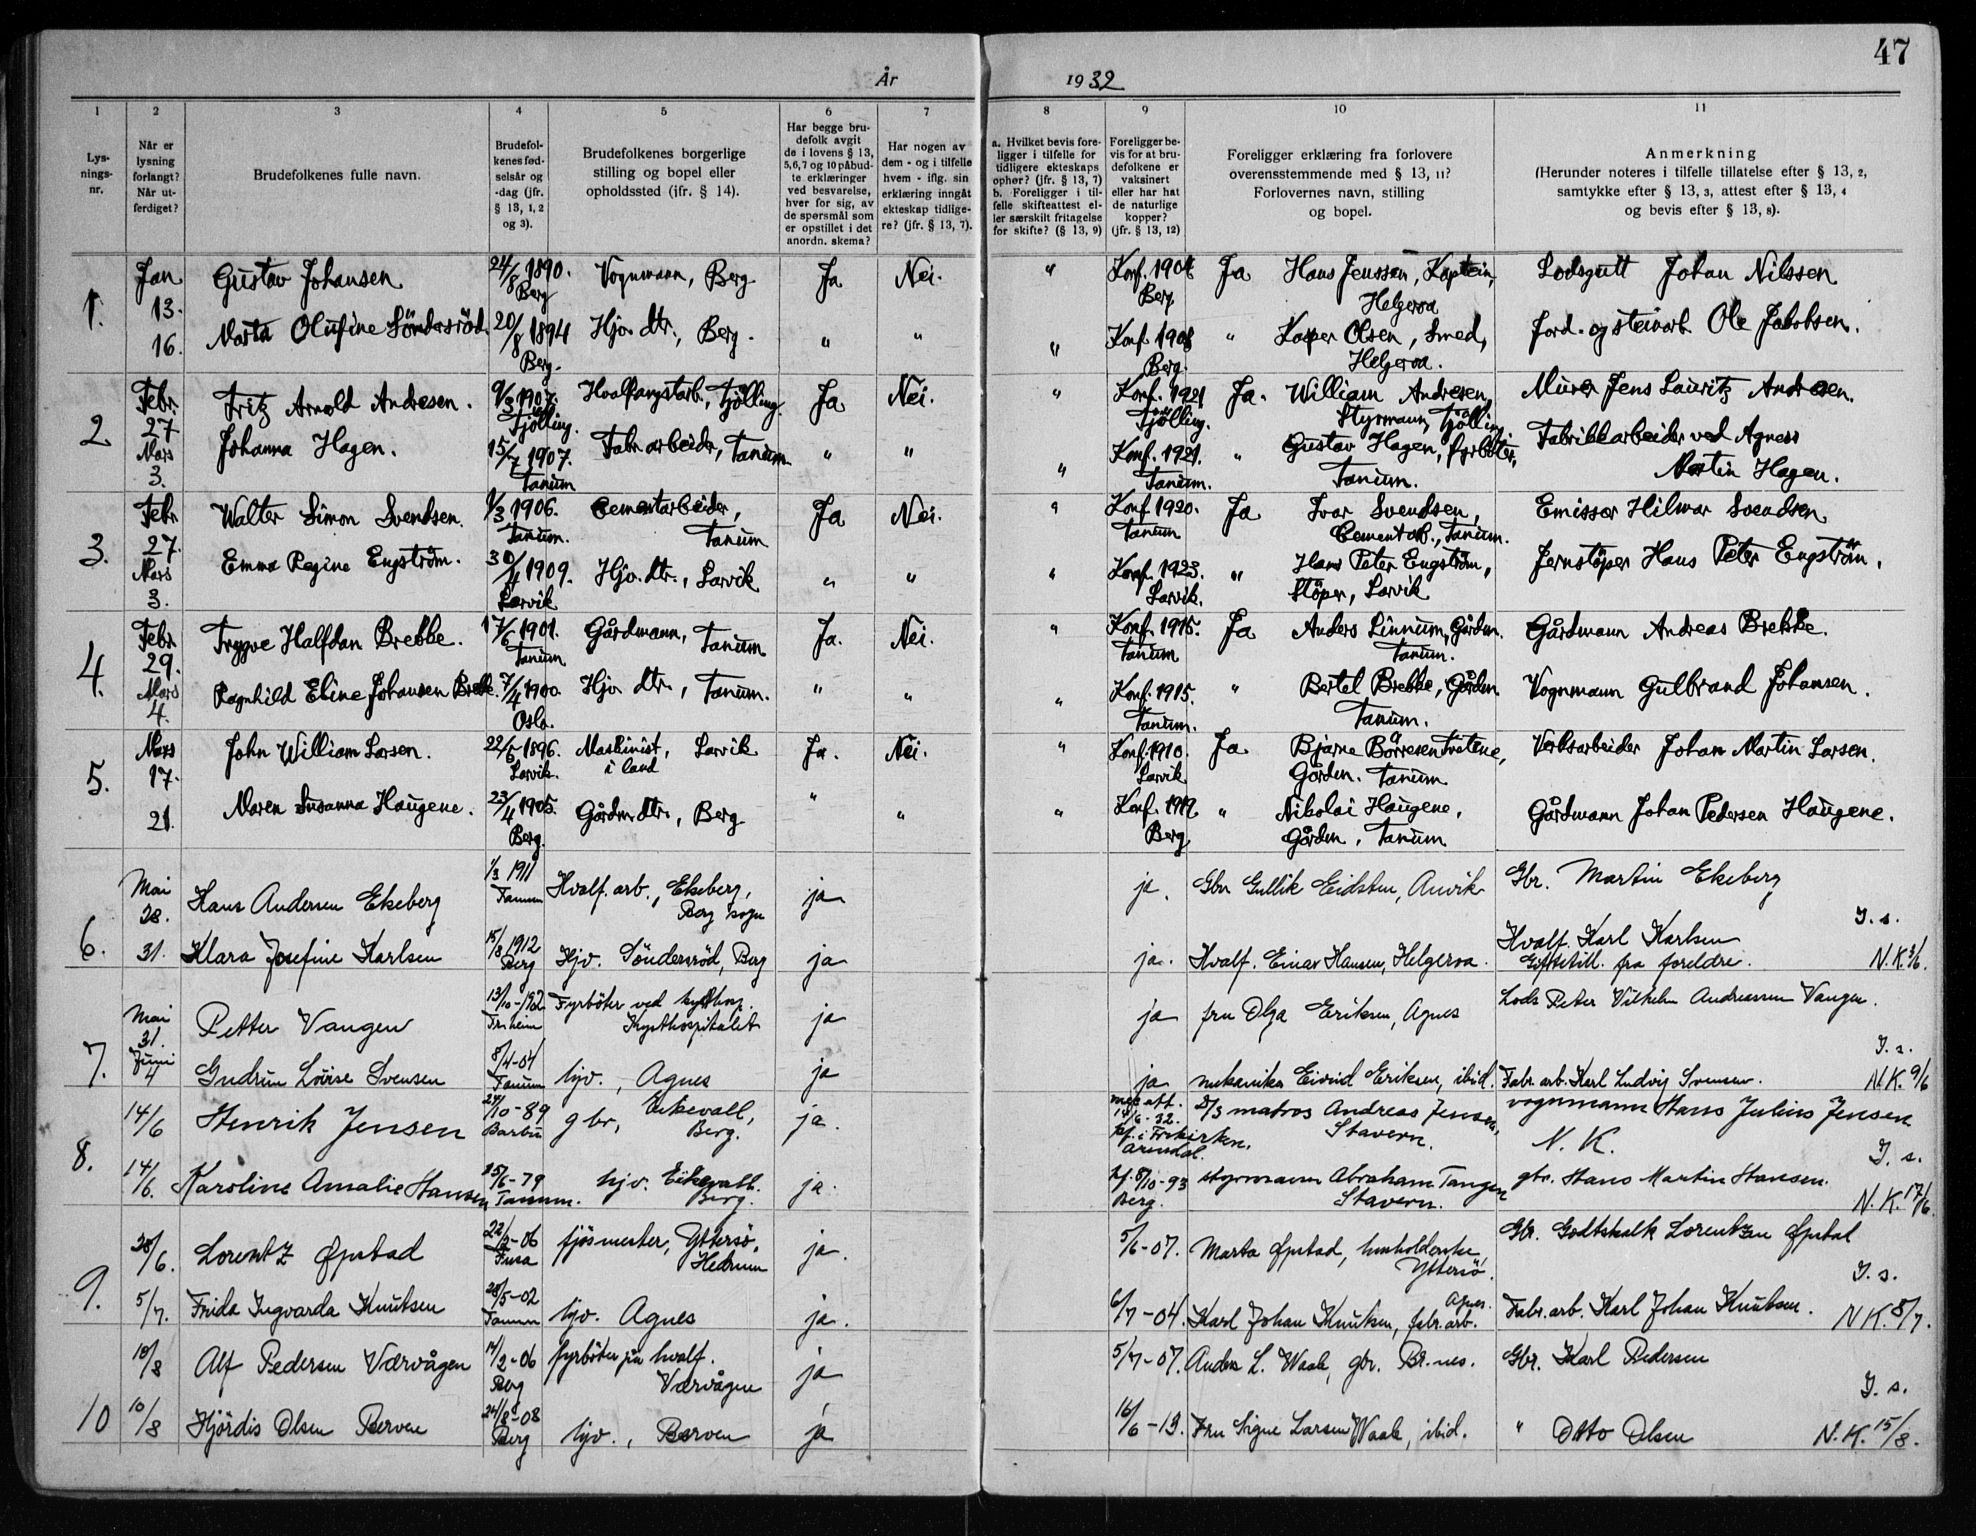 47
År 1932
1 2 3 4 5 6 7 8 9 10 11
Lys-
nings-
nr.
Når er
lysning
forlangt?
Når ut-
ferdiget?
Brudefolkenes fulle navn.
Brudefol-
kenes fød-
selsår og
-dag (jfr.
§ 13, 1, 2
og 3).
Brudefolkenes borgerlige
stilling og bopel eller
opholdssted (ifr. § 14).
Har begge bru-
defolk avgit
de i lovens § 13,
5,6,7 og 10 påbud-
te erklæringer
ved besvarelse,
hver for sig, av
de spørsmål som
er opstillet i det
anordn. skema?
Har nogen av
dem - og i tilfelle
hvem - iflg. sin
erklæring inngått
ekteskap tidlige-
re? (jfr. § 13, 7).
a. Hvilket bevis fore-
ligger i tilfelle for
tidligere ekteskaps
ophør? (jfr. § 13, 7)
b. Foreligger i til-
felle skifteattest el-
ler særskilt fritagelse
for skifte? (§ 13, 9)
Foreligger be-
vis for at bru-
defolkene er
vaksinert
eller har hat
de naturlige
kopper?
(jfr. § 13, 12)
Foreligger erklæring fra forlovere
overensstemmende med § 13, 11?
Forlovernes navn, stilling
og bopel.
Anmerkning
(Herunder noteres i tilfelle tillatelse efter § 13, 2,
samtykke efter § 13, 3, attest efter § 13, 4
og bevis efter § 13, 8).
1. Jan 13. Gustav Johansen 24/8 1890. Berg Vognmann, Berg Ja Nei. " Konf. 1904 Berg Ja Hans Jenssen, Kaptein, Helgeroa Lodsgutt Johan Nilssen
16. Marta Olufine Söndersröd 20/8 1894 Berg. Hjv. dtr., Berg. " " " Konf. 1908 Berg. " Kasper Olsen, Smed, Helgeroa. Jord- og steinarb. Ole Jakobsen.
2 Febr. 27. Fritz Arnold Andresen. 9/3 1907. Tjölling. Hvalfangstarb., Tjölling. Ja Nei. " Konf. 1921 Tjölling. Ja. William Andresen, Styrmann, Tjölling Murer Jens Lauritz Andresen.
Mars 3. Johanna Hagen. 15/7 1907. Tanum Fabr. arbeider, Tanum. " " " Konf. 1921. Tanum. " Gustav Hagen, fyrböter, Tanum. Fabrikkarbeider ved Agnes Martin Hagen.
3. Febr 27. Walter Simon Svendsen. 1/3 1906. Tanum. Cementarbeider, Tanum. Ja Nei. " Konf 1920. Tanum Ja Ivar Svendsen, Cementarb., Tanum. Emissær Hilmar Svendsen
Mars 3. Emma Regine Engström. 30/4 1909. Larvik Hjv. dtr., Larvik " " " Konf. 1923. Larvik. " Hans Peter Engström, Stöper, Larvik Jernstöper Hans Peter Engström.
4. Febr 29. Trygve Halfdan Brekke. 17/6 1901. Tanum Gårdmann, Tanum Ja. Nei. " Konf. 1915. Tanum Ja Anders Linnum, Gårdm. Tanum. Gårdmann Andreas Brekke.
Mars 4. Ragnhild Eline Johansen Brekke. 7/4 1900. Oslo. Hjv. dtr., Tanum. " " " Konf. 1915. Tanum. " Bertel Brekke, Gårdm. Tanum. Vognmann Gulbrand Johansen.
5. Mars 17. John William Larsen. 22/5 1896. Larvik. Maskinist, Larvik i land Ja. Nei. " Konf. 1910. Larvik Ja Bjarne Börresen Tvetene, Gårdm. Tanum Verksarbeider Johan Martin Larsen.
21. Maren Susanna Haugene. 23/4 1905. Berg. Gårdm. dtr., Berg " " " Konf. 1919. Berg " Nikolai Haugene, Gårdm., Tanum Gårdmann Johan Pedersen Haugene.
6. Mai 28. Hans Andersen Ekeberg 1/3 1911 Tanum Hvalf. arb., Ekeberg, Berg sogn ja ja. Gbr Gullik Eidsten, Anvik Gbr. Martin Ekeberg J. s.
31. Klara Josefine Karlsen 15/8 1912 Berg Hjv. Söndersröd, Berg ja ja. Hvalf. Einar Hansen, Helgeroa. Hvalf. Karl Karlsen Giftetill. fra foreldre. N. K. 3/6.
7. Mai 31. Petter Vangen 13/10-1902 Fyrböter ved Kysthospitalet ja ja fru Olga Eriksen, Agnes Lods Peter Vilhelm Andreassen Vangen. J. s.
Juni 4 Gudrun Lovise Svensen 8/4-04 Tanum hjv., Agnes ja ja mekaniker Eivind Eriksen, ibid. Fabr. arb. Karl Ludvig Svensen. N. K. 9/6
8. 14/6 Henrik Jensen 24/10-89 Barbu gbr, Eikevall, Berg. ja. kf. i Frikirken, Arendal. matros Andreas Jensen, Stavern. vognmann Hans Julius Jensen N. K. J. s.
14/6. Karoline Amalie Hansen 15/6-79 Tanum. hjv. Eikevall. Berg. ja. kf. 8/10-93 Berg. styrmann Abraham Tangen Stavern. gbr. Hans Martin Hansen. N. K. 17/6.
9. 28/6. Lorentz Øpstad 22/2-06 Fusa fjösmester, Yttersö, Hedrum ja. 5/6-07. Marta Øpstad, husholderske, Yttersö. Gbr. Godtskalk Lorentzen Øpstad J. s.
5/7. Frida Ingvarda Knutsen 28/5-02 Tanum hjv. Agnes ja. 6/7-04. Karl Johan Knutsen, fabr. arb. Agnes. Fabr. arb. Karl Johan Knutsen. N K. 8/7.
10 10/8 Alf Pedersen Værvågen 14/2-06 Berg fyrböter på hvalf. Værvågen ja 5/7-07. Anders L. Waale, gbr. Br.nes. Gbr. Karl Pedersen J. s.
10/8 Hjördis Olsen Berven 24/8-08 Berg hjv., Berven ja 16/6-13. Fru Signe Larsen Waale, ibid. " Otto Olsen N. K. 15/8.